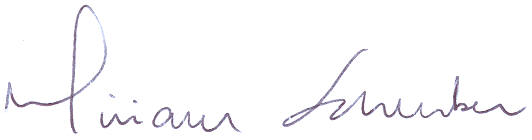 Miriam Schreiber